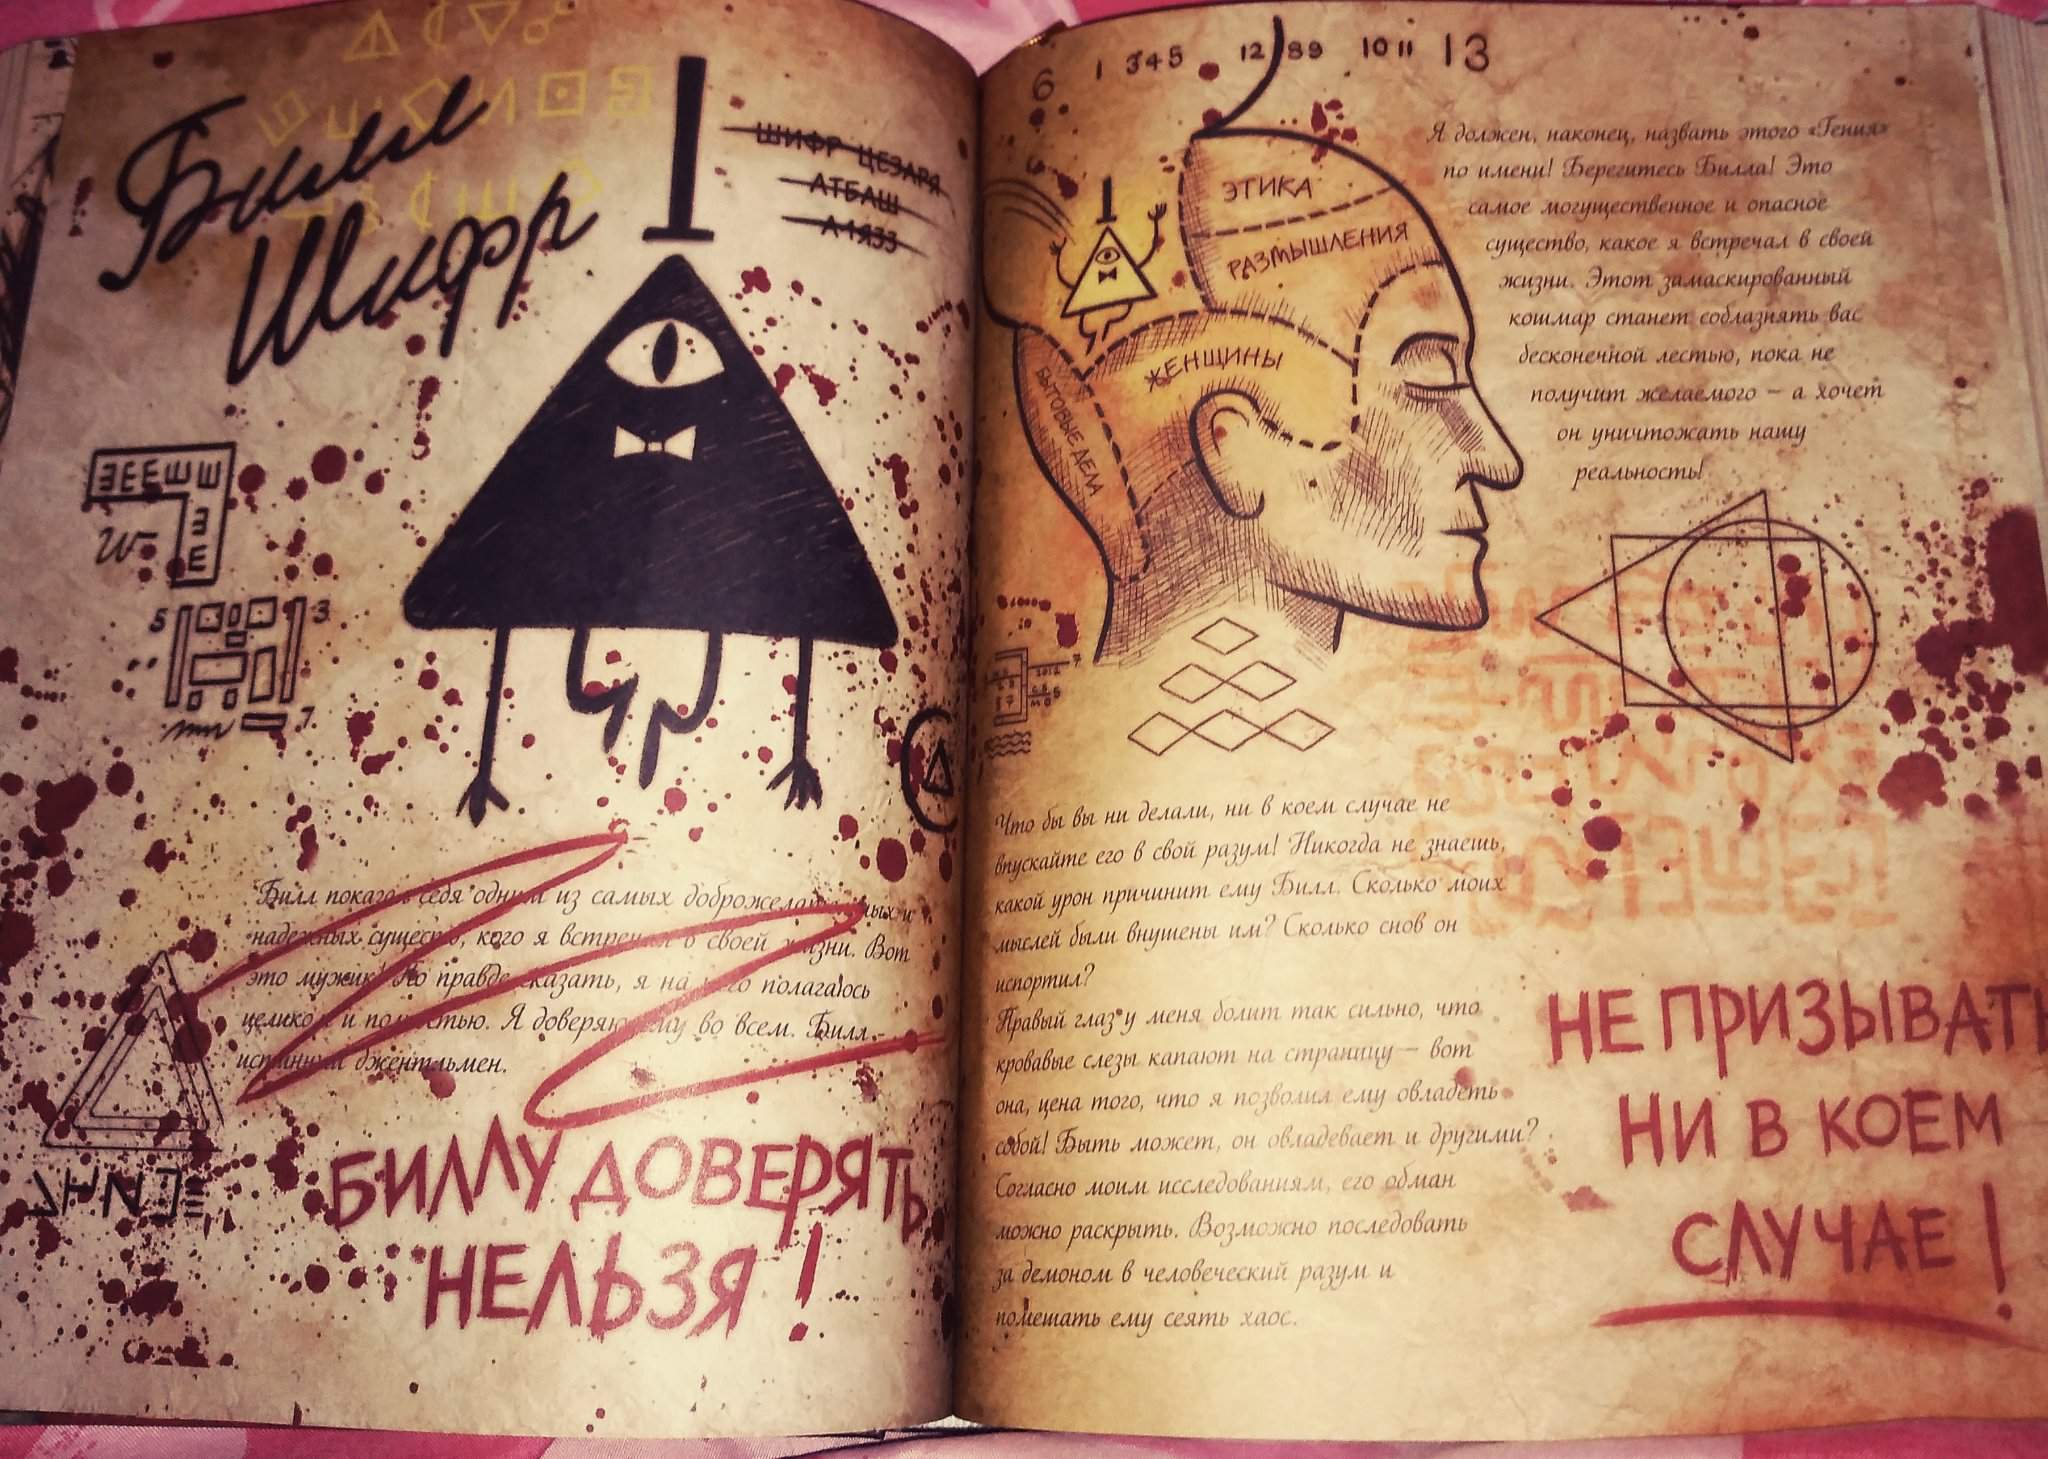 Билл
Шифр
ШИФР ЦЕЗАРЯ
АТБАШ
А1ЯЗЗ
5
3
7
Билл показал себя одним из самых доброжелательных и
надежных существ, кого я встречал в своей жизни. Вот
это мужик! По правде сказать, я на него полагаюсь
целиком и полностью. Я доверяю ему во всем. Билл -
истинный джентльмен.
БИЛЛУ ДОВЕРЯТЬ
НЕЛЬЗЯ!
6 1 345 12 89 10 11 13
ЭТИКА
РАЗМЫШЛЕНИЯ
ЖЕНЩИНЫ
БЫТОВЫЕ ДЕЛА
Я должен, наконец, назвать этого «Гения»
по имени! Берегитесь Билла! Это
самое могущественное и опасное
существо, какое я встречал в своей
жизни. Этот замаскированный
кошмар станет соблазнять вас
бесконечной лестью, пока не
получит желаемого – а хочет
он уничтожать нашу
реальность!
Что бы вы ни делали, ни в коем случае не
впускайте его в свой разум! Никогда не знаешь,
какой урон причинит ему Билл. Сколько моих
мыслей были внушены им? Сколько снов он
испортил?
Правый глаз у меня болит так сильно, что
кровавые слезы капают на страницу – вот
она, цена того, что я позволил ему овладеть
собой! Быть может, он овладевает и другими?
Согласно моим исследованиям, его обман
можно раскрыть. Возможно последовать
за демоном в человеческий разум и
помешать ему сеять хаос.
НЕ ПРИЗЫВАТЬ
НИ В КОЕМ
СЛУЧАЕ!